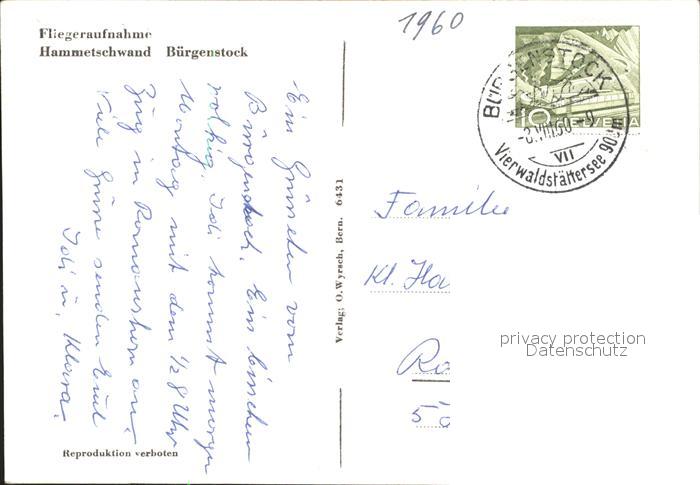 Fliegeraufnahme
Hammetschwand Bürgenstock
1960
BÜRGENSTOCK
-8.VIII.60-9
VII
Vierwaldstättersee 900m
10 HELVETIA
Ein Grüsslein vom
Bürgenstock. Ein bisschen
wolkig. Idi kommt morgen
Montag mit dem ½8 Uhr
Zug in Romanshorn an.
Viele Grüsse senden Euch
Idi u. Klara.
Familie
Kl. Ha
Ro
Verlag: O. Wyrsch, Bern. 6431
Reproduktion verboten
privacy protection
Datenschutz